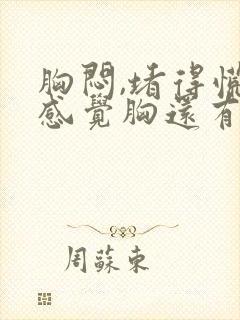 胸悶,堵得慌
感覺胸還有
周蘇東